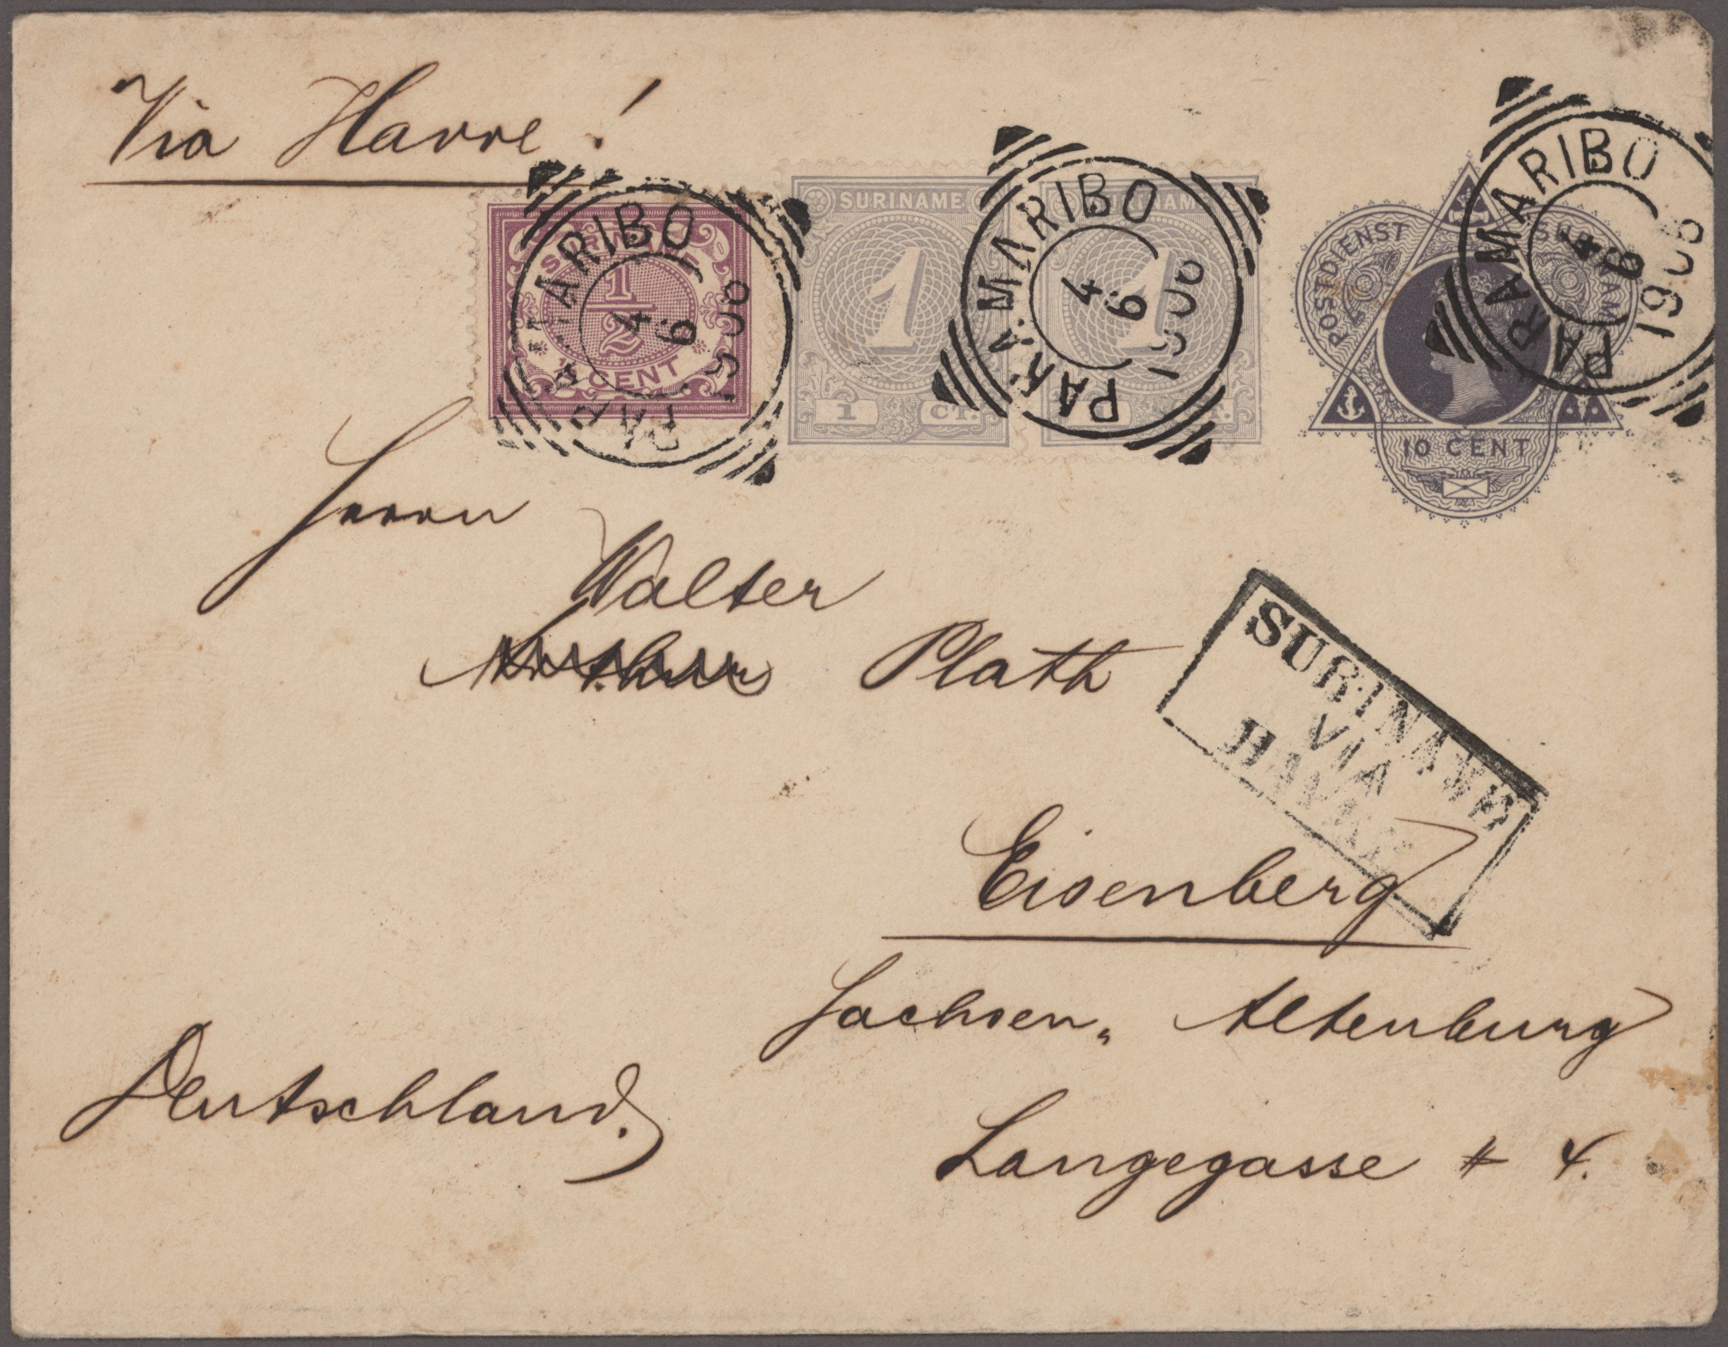 Via Havre!
SURINAME
1/2
1/2 CENT
PARAMARIBO
4
6
SURINAME
1
1 CT.
SURINAME
1
PARAMARIBO
4
6
POSTDIENST SURINAME
10 CENT
PARAMARIBO
4
6
1908
Herrn
Walter
Plath
SURINAME
VIA
HAVRE
Eisenberg
Sachsen„ Altenburg
Deutschland.
Langegasse # 4.